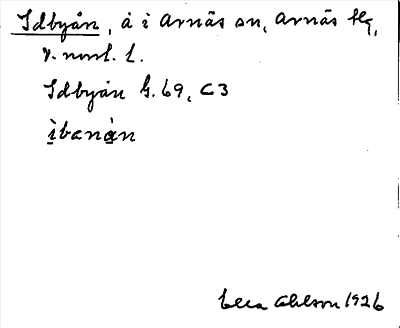 Idbyån, å i Arnäs sn, Arnäs tg,
v. norrl. l.
Idbyån G. 69, C3
ìbanán
Ella Ohlson 1926